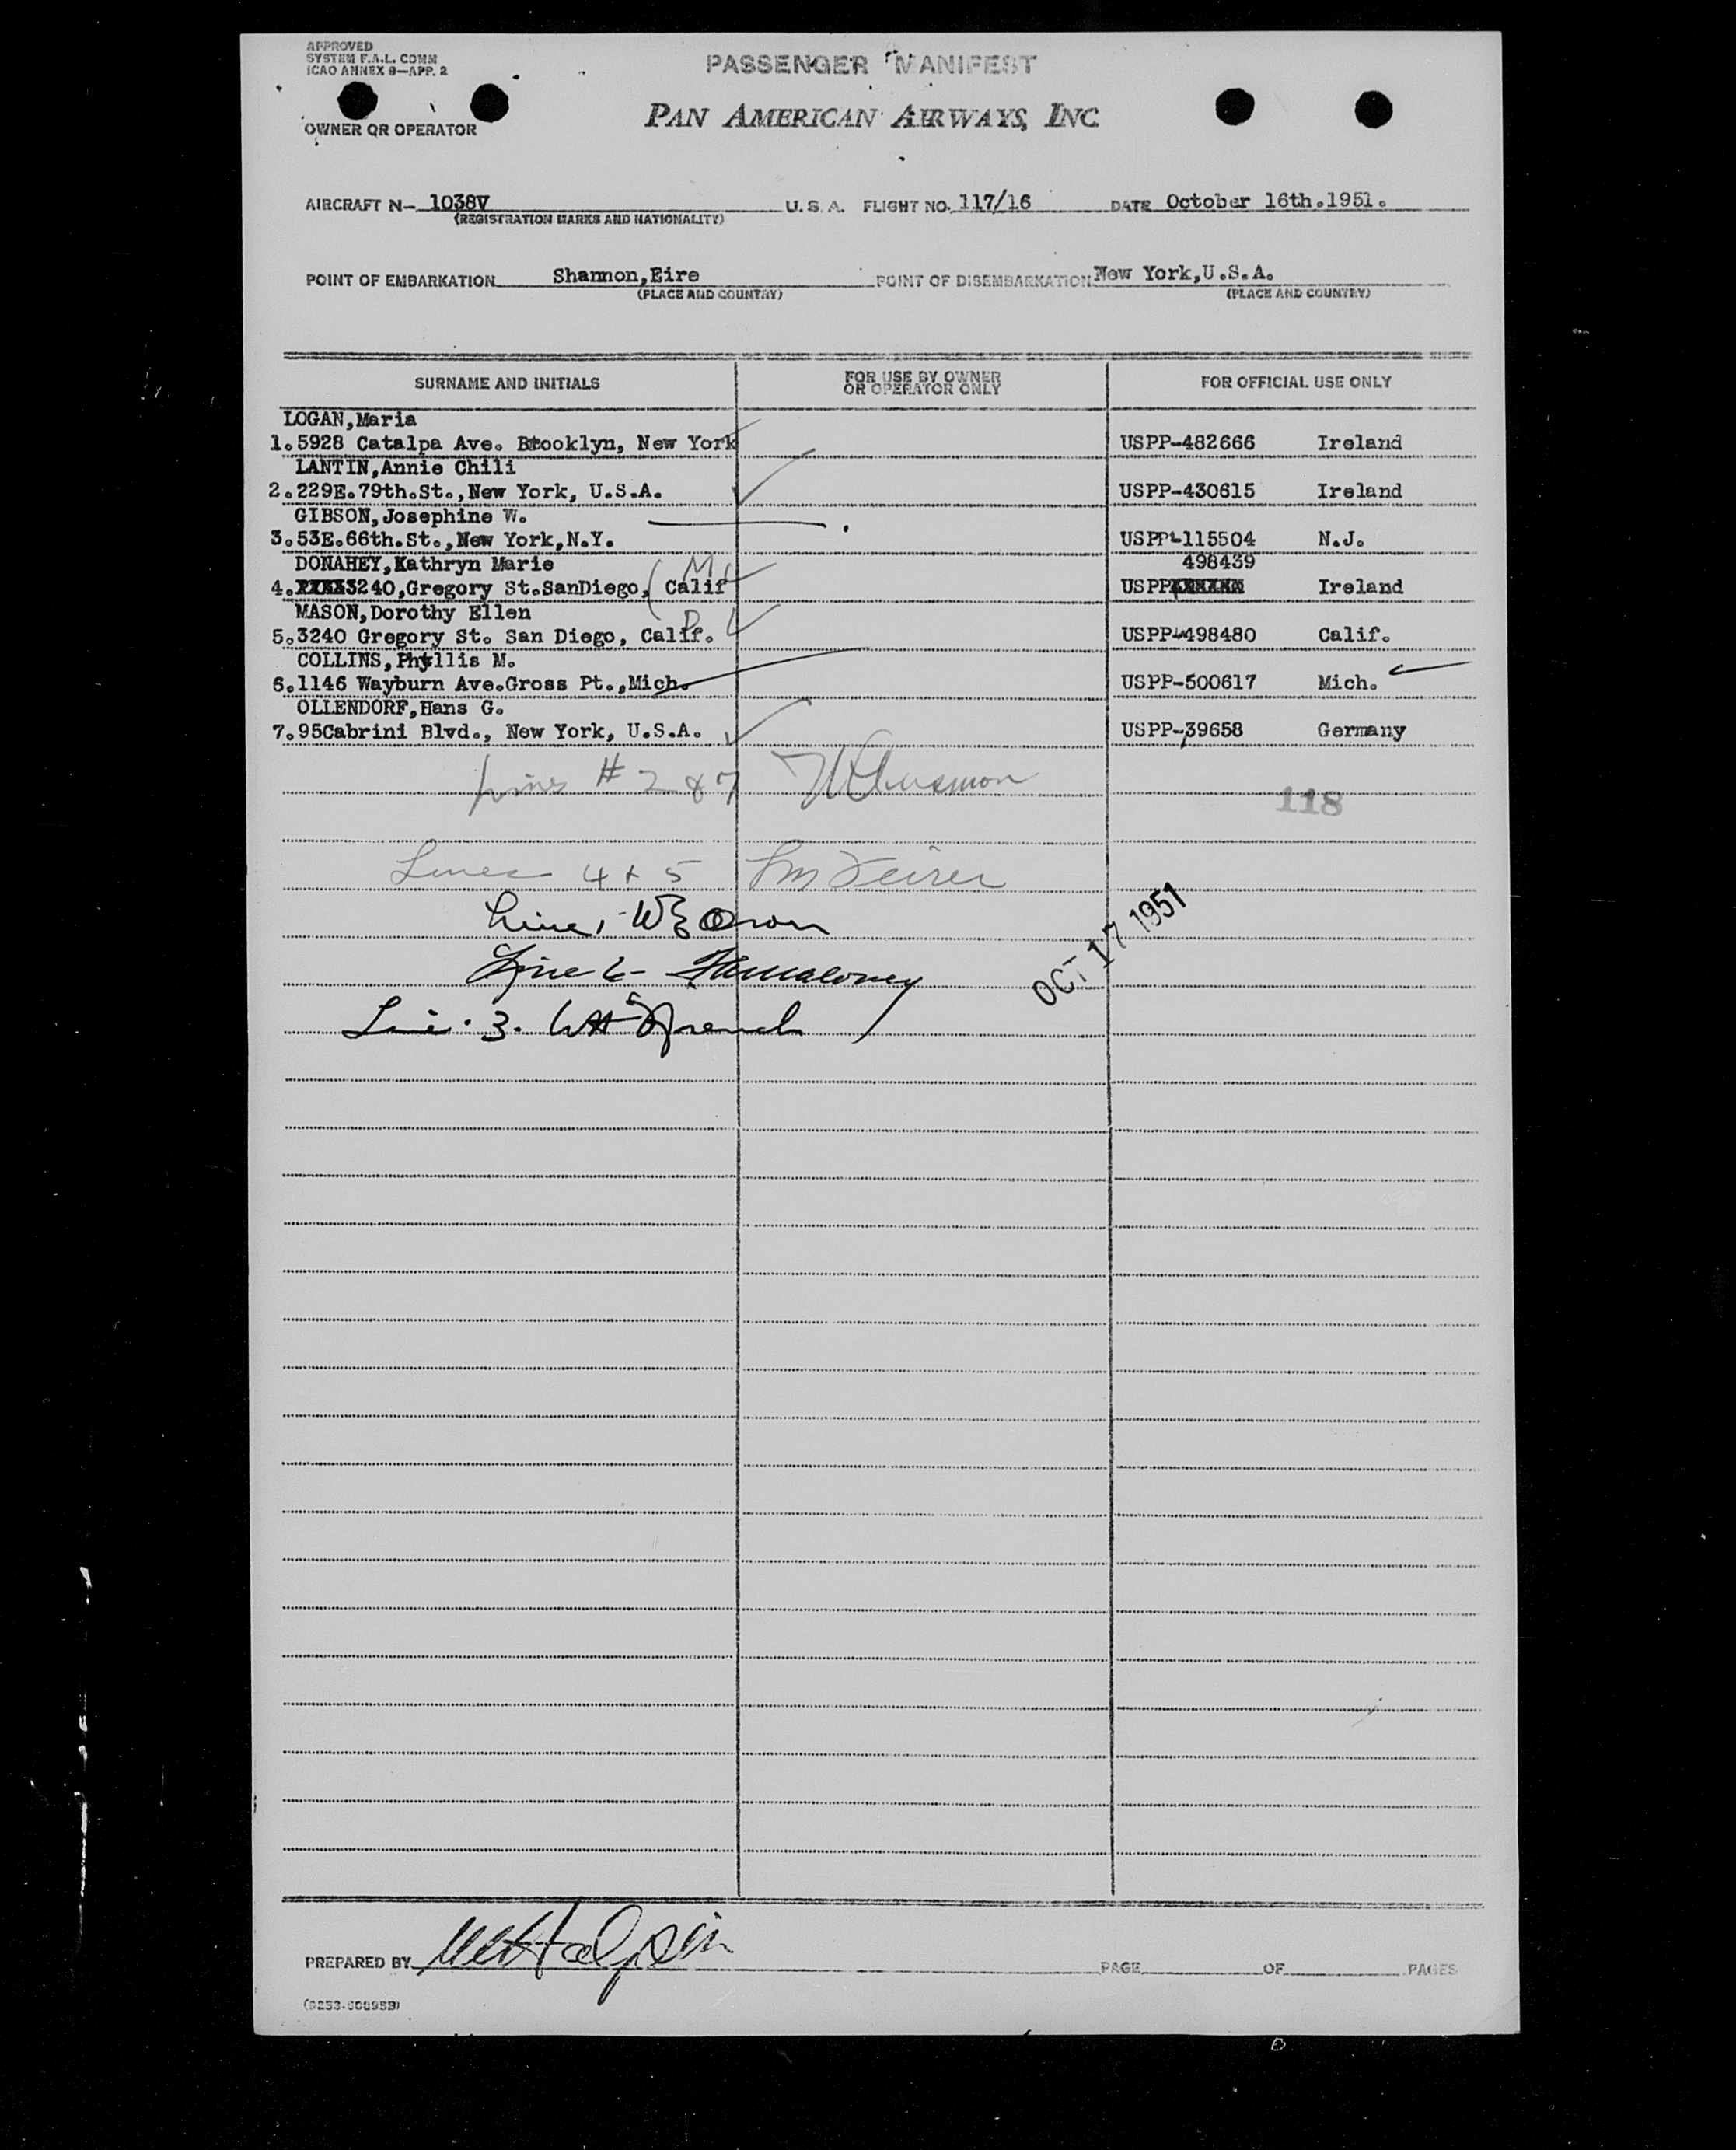 APPROVED
SYSTEM F.A.L. COMM
ICAO ANNEX 9—APP. 2
PASSENGER MANIFEST
PAN AMERICAN AIRWAYS, INC.
OWNER OR OPERATOR
AIRCRAFT N- 1038V U.S.A. FLIGHT NO. 117/16 DATE October 16th.1951.
(REGISTRATION MARKS AND NATIONALITY)
POINT OF EMBARKATION Shannon,Eire POINT OF DISEMBARKATION New York,U.S.A.
(PLACE AND COUNTRY) (PLACE AND COUNTRY)
SURNAME AND INITIALS FOR USE BY OWNER OR OPERATOR ONLY FOR OFFICIAL USE ONLY
LOGAN,Maria
1.5928 Catalpa Ave. Brooklyn, New York USPP-482666 Ireland
LANTIN,Annie Chili
2.229E.79th.St.,New York, U.S.A. USPP-430615 Ireland
GIBSON,Josephine W.
3.53E.66th.St.,New York,N.Y. USPP-115504 N.J.
DONAHEY,Kathryn Marie 498439
4. 3240,Gregory St.SanDiego, Calif USPP Ireland
MASON,Dorothy Ellen
5.3240 Gregory St. San Diego, Calif. USPP-498480 Calif.
COLLINS,Phyllis M.
6.1146 Wayburn Ave.Gross Pt.,Mich. USPP-500617 Mich.
OLLENDORF,Hans G.
7.95Cabrini Blvd., New York, U.S.A. USPP-39658 Germany
Lines # 2 & 7
118
Lines 4 + 5
Line 1
OCT 17 1951
Line 6-
Line 3.
PREPARED BY PAGE OF PAGES